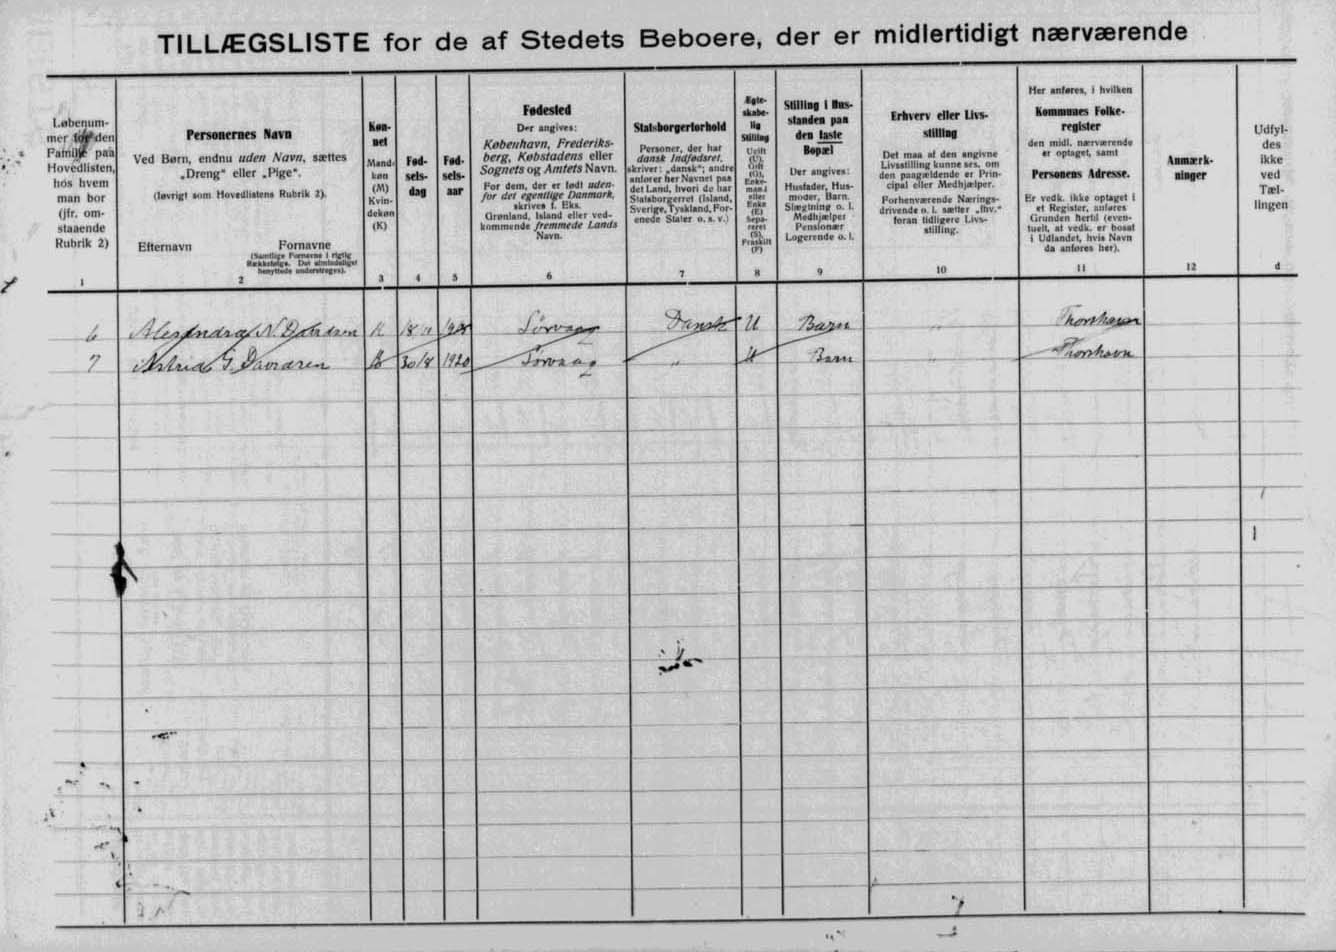 TILLÆGSLISTE for de af Stedets Beboere, der er midlertidigt nærværende
Løbenum-
mer for den
Familie paa
Hovedlisten,
hos hvem
man bor
(jfr. om-
staaende
Rubrik 2)
1
Personernes Navn
Ved Børn, endnu uden Navn, sættes
„Dreng“ eller „Pige“.
(Iøvrigt som Hovedlistens Rubrik 2).
Efternavn
Fornavne
(Samtlige Fornavne i rigtig
Rækkefølge. Det almindeligst
benyttede understreges).
2
Køn-
net
Mand-
køn
(M)
Kvin-
dekøn
(K)
3
Fød-
sels-
dag
4
Fød-
sels-
aar
5
Fødested
Der angives:
København, Frederiks-
berg, Købstadens eller
Sognets og Amtets Navn.
For dem, der er født uden-
for det egentlige Danmark,
skrives f. Eks.
Grønland, Island eller ved-
kommende fremmede Lands
Navn.
6
Statsborgerforhold
Personer, der har
dansk Indfødsret,
skriver: „dansk“; andre
anfører her Navnet paa
det Land, hvori de har
Statsborgerret (Island,
Sverige, Tyskland, For-
enede Stater o. s. v.)
7
Ægte-
skabe-
lig
Stilling
Ugift
(U),
Gift
(G),
Enke-
mand
eller
Enke
(E)
Sepa-
reret
(S),
Fraskilt
(F)
8
Stilling i Hus-
standen paa
den faste
Bopæl
Der angives:
Husfader, Hus-
moder, Barn,
Slægtning o. l.
Medhjælper
Pensionær
Logerende o. l.
9
Erhverv eller Livs-
stilling
Det maa af den angivne
Livsstilling kunne ses, om
den paagældende er Prin-
cipal eller Medhjælper.
Forhenværende Nærings-
drivende o. l. sætter „fhv.“
foran tidligere Livs-
stilling.
10
Her anføres, i hvilken
Kommunes Folke-
register
den midl. nærværende
er optaget, samt
Personens Adresse.
Er vedk. ikke optaget i
et Register, anføres
Grunden hertil (even-
tuelt, at vedk. er bosat
i Udlandet, hvis Navn
da anføres her).
11
Anmærk-
ninger
12
Udfyl-
des
ikke
ved
Tæl-
lingen
d
6 N. Davidsen K Sørvaag Dansk U Barn „ Thorshavn
7 Astrid G. Davidsen 30/8 1920 Sørvaag „ U Barn „ Thorshavn